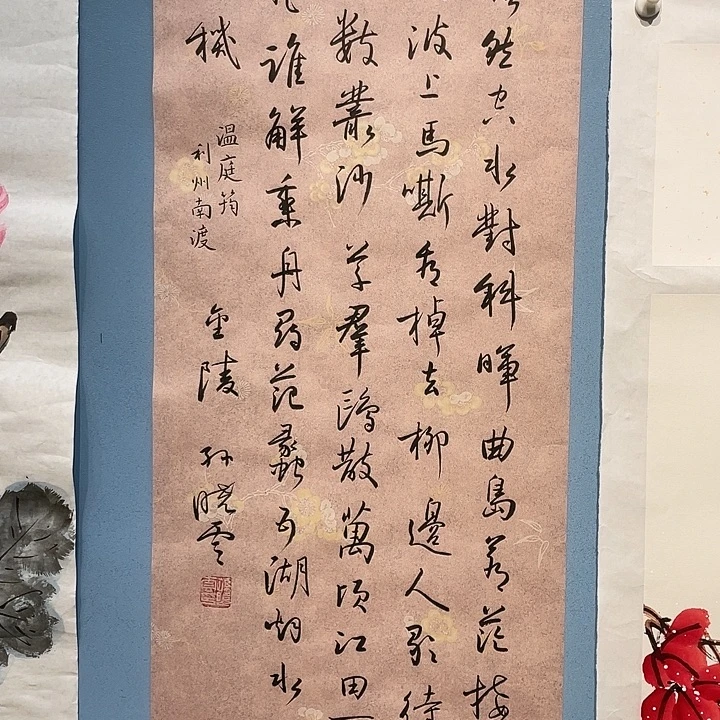 然空水對斜暉曲島蒼茫接
波上馬嘶看棹去柳邊人歇待
數叢沙草羣鷗散萬頃江田一
誰解乘舟尋范蠡五湖烟水
機
温庭筠
利州南渡
金陵 孫曉雲